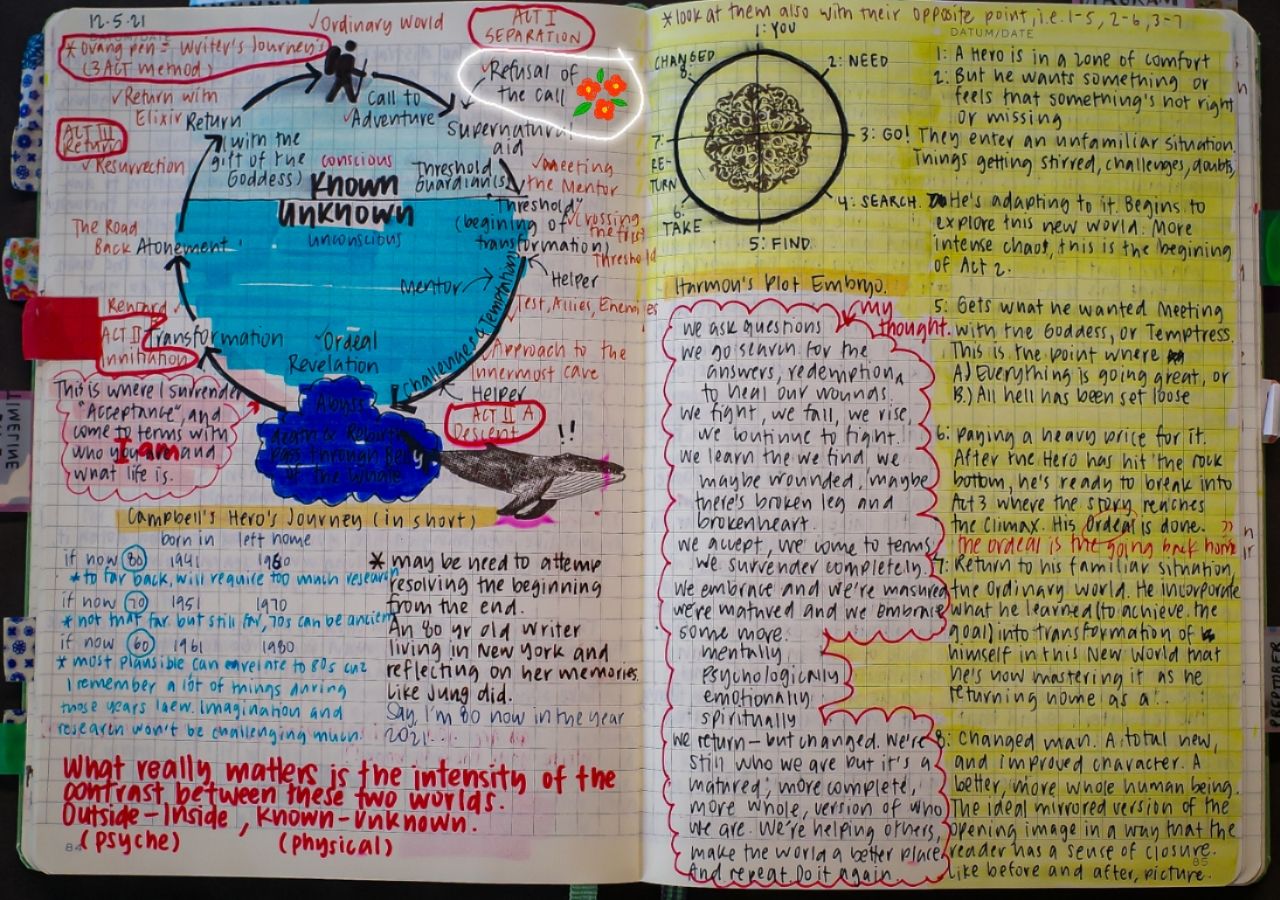 12.5.21
DATUM/DATE
* Orang pen = Writer's Journey's
(3 ACT method)
✓Ordinary World
ACT I
SEPARATION
✓Refusal of
the call
✓Call to
Adventure
Supernatural
aid
✓Return with
Elixir
Return
(with the
gift of the
Goddess)
ACT III
Return
✓Resurrection
conscious
Known
Unknown
unconscious
Threshold
Guardian(s)
✓Meeting
the Mentor
"Threshold"
(begining of
transformation)
✓Crossing
the first
Threshold
The Road
Back
Atonement
Mentor
Helper
Challenges & Temptations
Test, Allies, Enemies
Reward ✓
ACT II B
Innitiation
Transformation
✓Ordeal
Revelation
Approach to the
Innermost cave
Helper
ACT II A
Descent
!!
Abyss
death & Rebirth
pass through Belly
of the Whale
This is where I surrender
"Acceptance", and
come to terms with
who you are and
I am
what life is.
Campbell's Hero's Journey (in short)
born in left home
if now 80 1941 1960
* to far back, will require too much research
if now 70 1951 1970
* not that far but still far, 70s can be ancient
if now 60 1961 1980
* most plausible can
I remember a lot of things during
those years
Imagination and
research won't be challenging much.
* may be need to attemp
resolving the beginning
from the end.
An 80 yr old Writer
living in New York and
reflecting on her memories.
Like Jung did.
Say, I'm 60 now in the year
2021...
What really matters is the intensity of the
contrast between these two worlds.
Outside-Inside, Known-Unknown.
(psyche) (physical)
84
* look at them also with their opposite point, i.e. 1-5, 2-6, 3-7
DATUM/DATE
1: YOU
2: NEED
3: GO!
4: SEARCH
5: FIND
6:
TAKE
7:
RE-
TURN
CHANGED
8:
Harmon's Plot Embryo.
my
thought.
we ask questions
we go search for the
answers, redemption,
to heal our wounds.
We fight, we fall, we rise,
we continue to fight.
We learn the we find we
maybe wounded, maybe
there's broken leg and
brokenheart.
we accept, we come to terms
we surrender completely.
we embrace and we're
we're matured and we embrace
some more.
mentally
psychologically
emotionally
spiritually
we return - but changed. We're
still who we are but it's a
matured, more complete,
more whole, version of who
we are. We're helping others,
make the world a better place
And repeat. Do it again.
1: A Hero is in a zone of comfort
2: But he wants something or
feels that something's not right
or missing
They enter an unfamiliar situation.
Things getting stirred, challenges, doubts,
He's adapting to it. Begins to
explore this new world. More
intense chaos, this is the begining
of Act 2.
5: Gets what he wanted Meeting
with the Goddess, or Temptress.
This is the point where
A.) Everything is going great, or
B.) All hell has been set loose
6: Paying a heavy price for it.
After the Hero has hit the rock
bottom, he's ready to break into
Act 3 where the story reaches
the climax. His Ordeal is done.
the ordeal is the going back home
7: Return to his familiar situation,
the Ordinary world. He incorporate
what he learned (to achieve the
goal) into transformation of
himself in this New World that
he's now mastering it as he
returning home as a..
8: Changed man. A total new,
and improved character. A
better, more whole human being.
The ideal mirrored version of the
opening image in a way that the
reader has a sense of closure.
like before and after, picture.
85